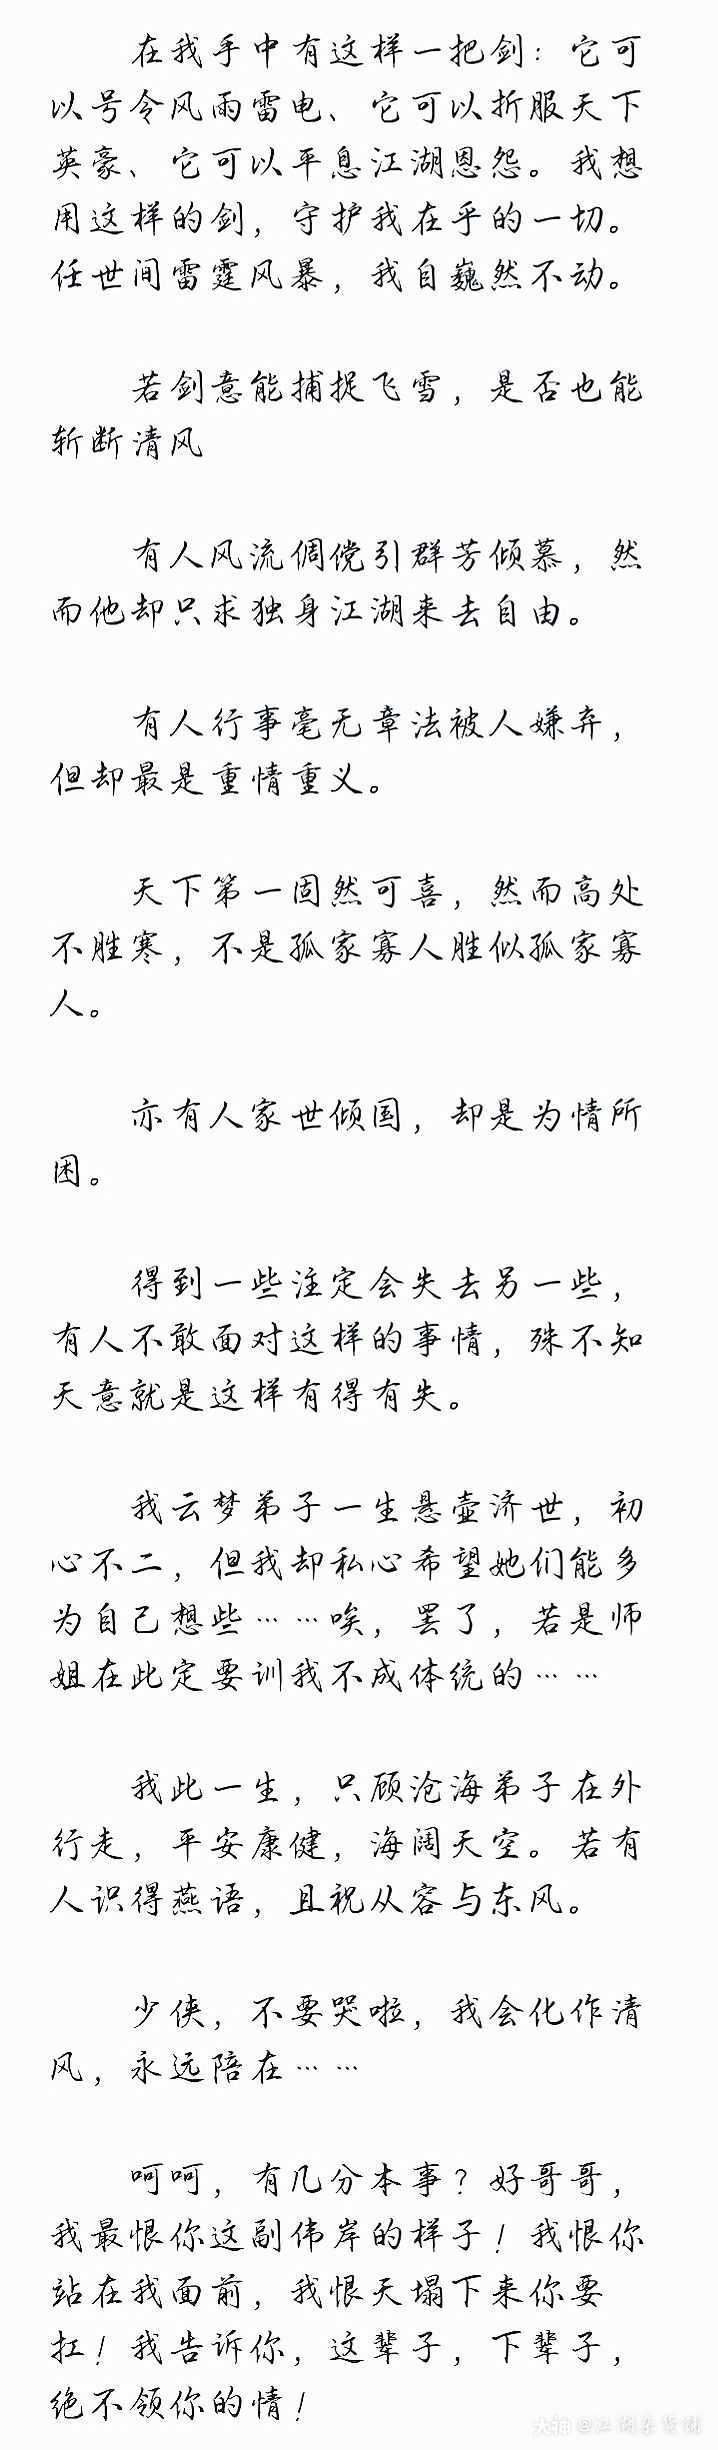 在我手中有这样一把剑：它可
以号令风雨雷电、它可以折服天下
英豪、它可以平息江湖恩怨。我想
用这样的剑，守护我在乎的一切。
任世间雷霆风暴，我自巍然不动。
若剑意能捕捉飞雪，是否也能
斩断清风
有人风流倜傥引群芳倾慕，然
而他却只求独身江湖来去自由。
有人行事毫无章法被人嫌弃，
但却最是重情重义。
天下第一固然可喜，然而高处
不胜寒，不是孤家寡人胜似孤家寡
人。
亦有人家世倾国，却是为情所
困。
得到一些注定会失去另一些，
有人不敢面对这样的事情，殊不知
天意就是这样有得有失。
我云梦弟子一生悬壶济世，初
心不二，但我却私心希望她们能多
为自己想些……唉，罢了，若是师
姐在此定要训我不成体统的……
我此一生，只顾沧海弟子在外
行走，平安康健，海阔天空。若有
人识得燕语，且祝从容与东风。
少侠，不要哭啦，我会化作清
风，永远陪在……
呵呵，有几分本事？好哥哥，
我最恨你这副伟岸的样子！我恨你
站在我面前，我恨天塌下来你要
扛！我告诉你，这辈子，下辈子，
绝不领你的情！